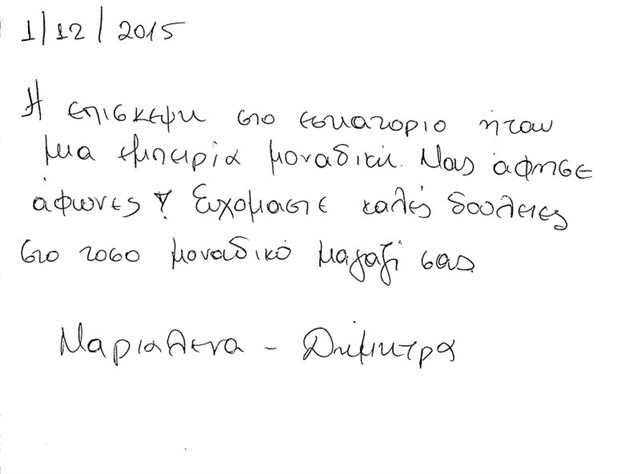 1/12/2015
Η επισκεψη στο εστιατοριο ήταν
μια εμπειρία μοναδική. Μας άφησε
άφωνες! Ευχομαστε καλές δουλειες
στο τοσο μοναδικό μαγαζί σας
Μαριαλενα - Δήμητρα